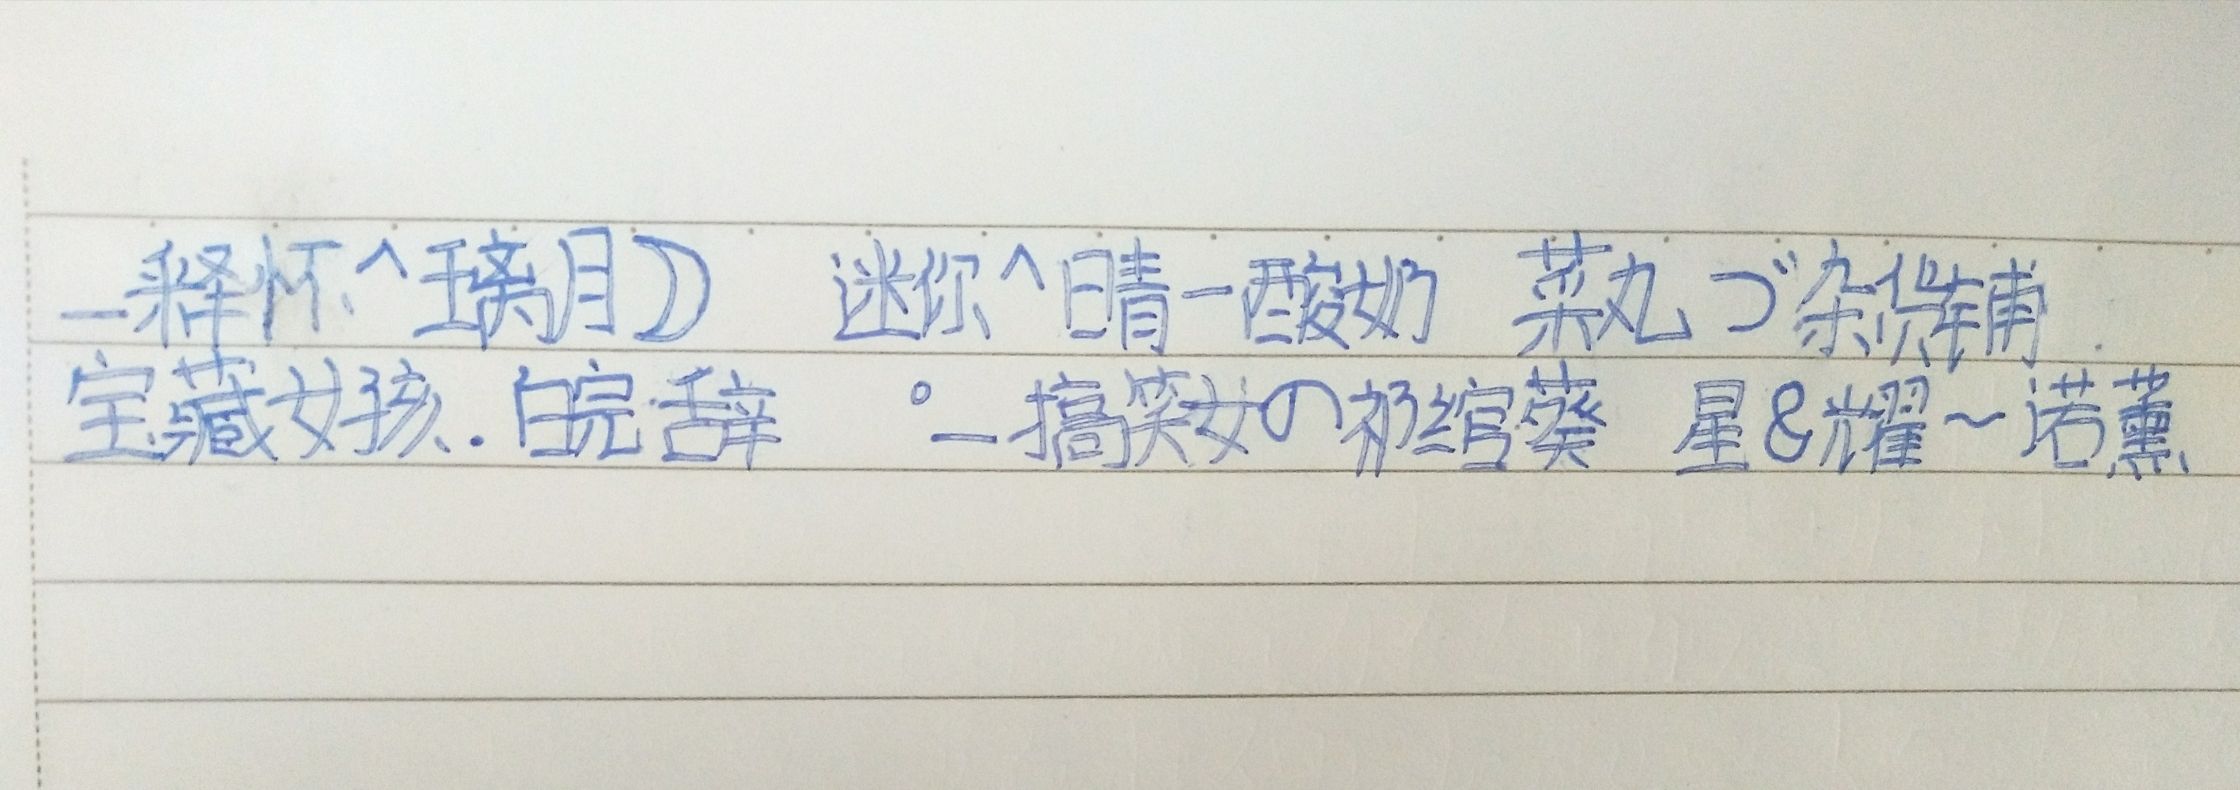 _释怀^璃月》 迷你^晴-酸奶 菜丸づ杂货铺
宝藏女孩.皖辞 °_搞笑女の祁绾葵 星&耀~诺薰